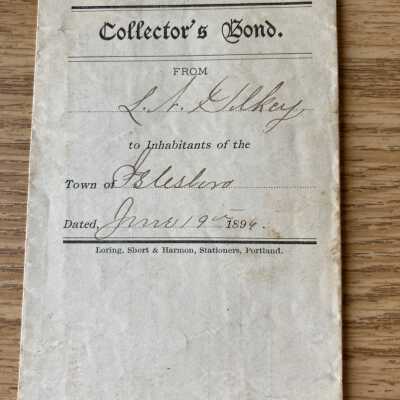 Collector's Bond.
FROM
L. N. Gilkey
to Inhabitants of the
Town of Islesboro
Dated, June 19th 1894.
Loring, Short & Harmon, Stationers, Portland.